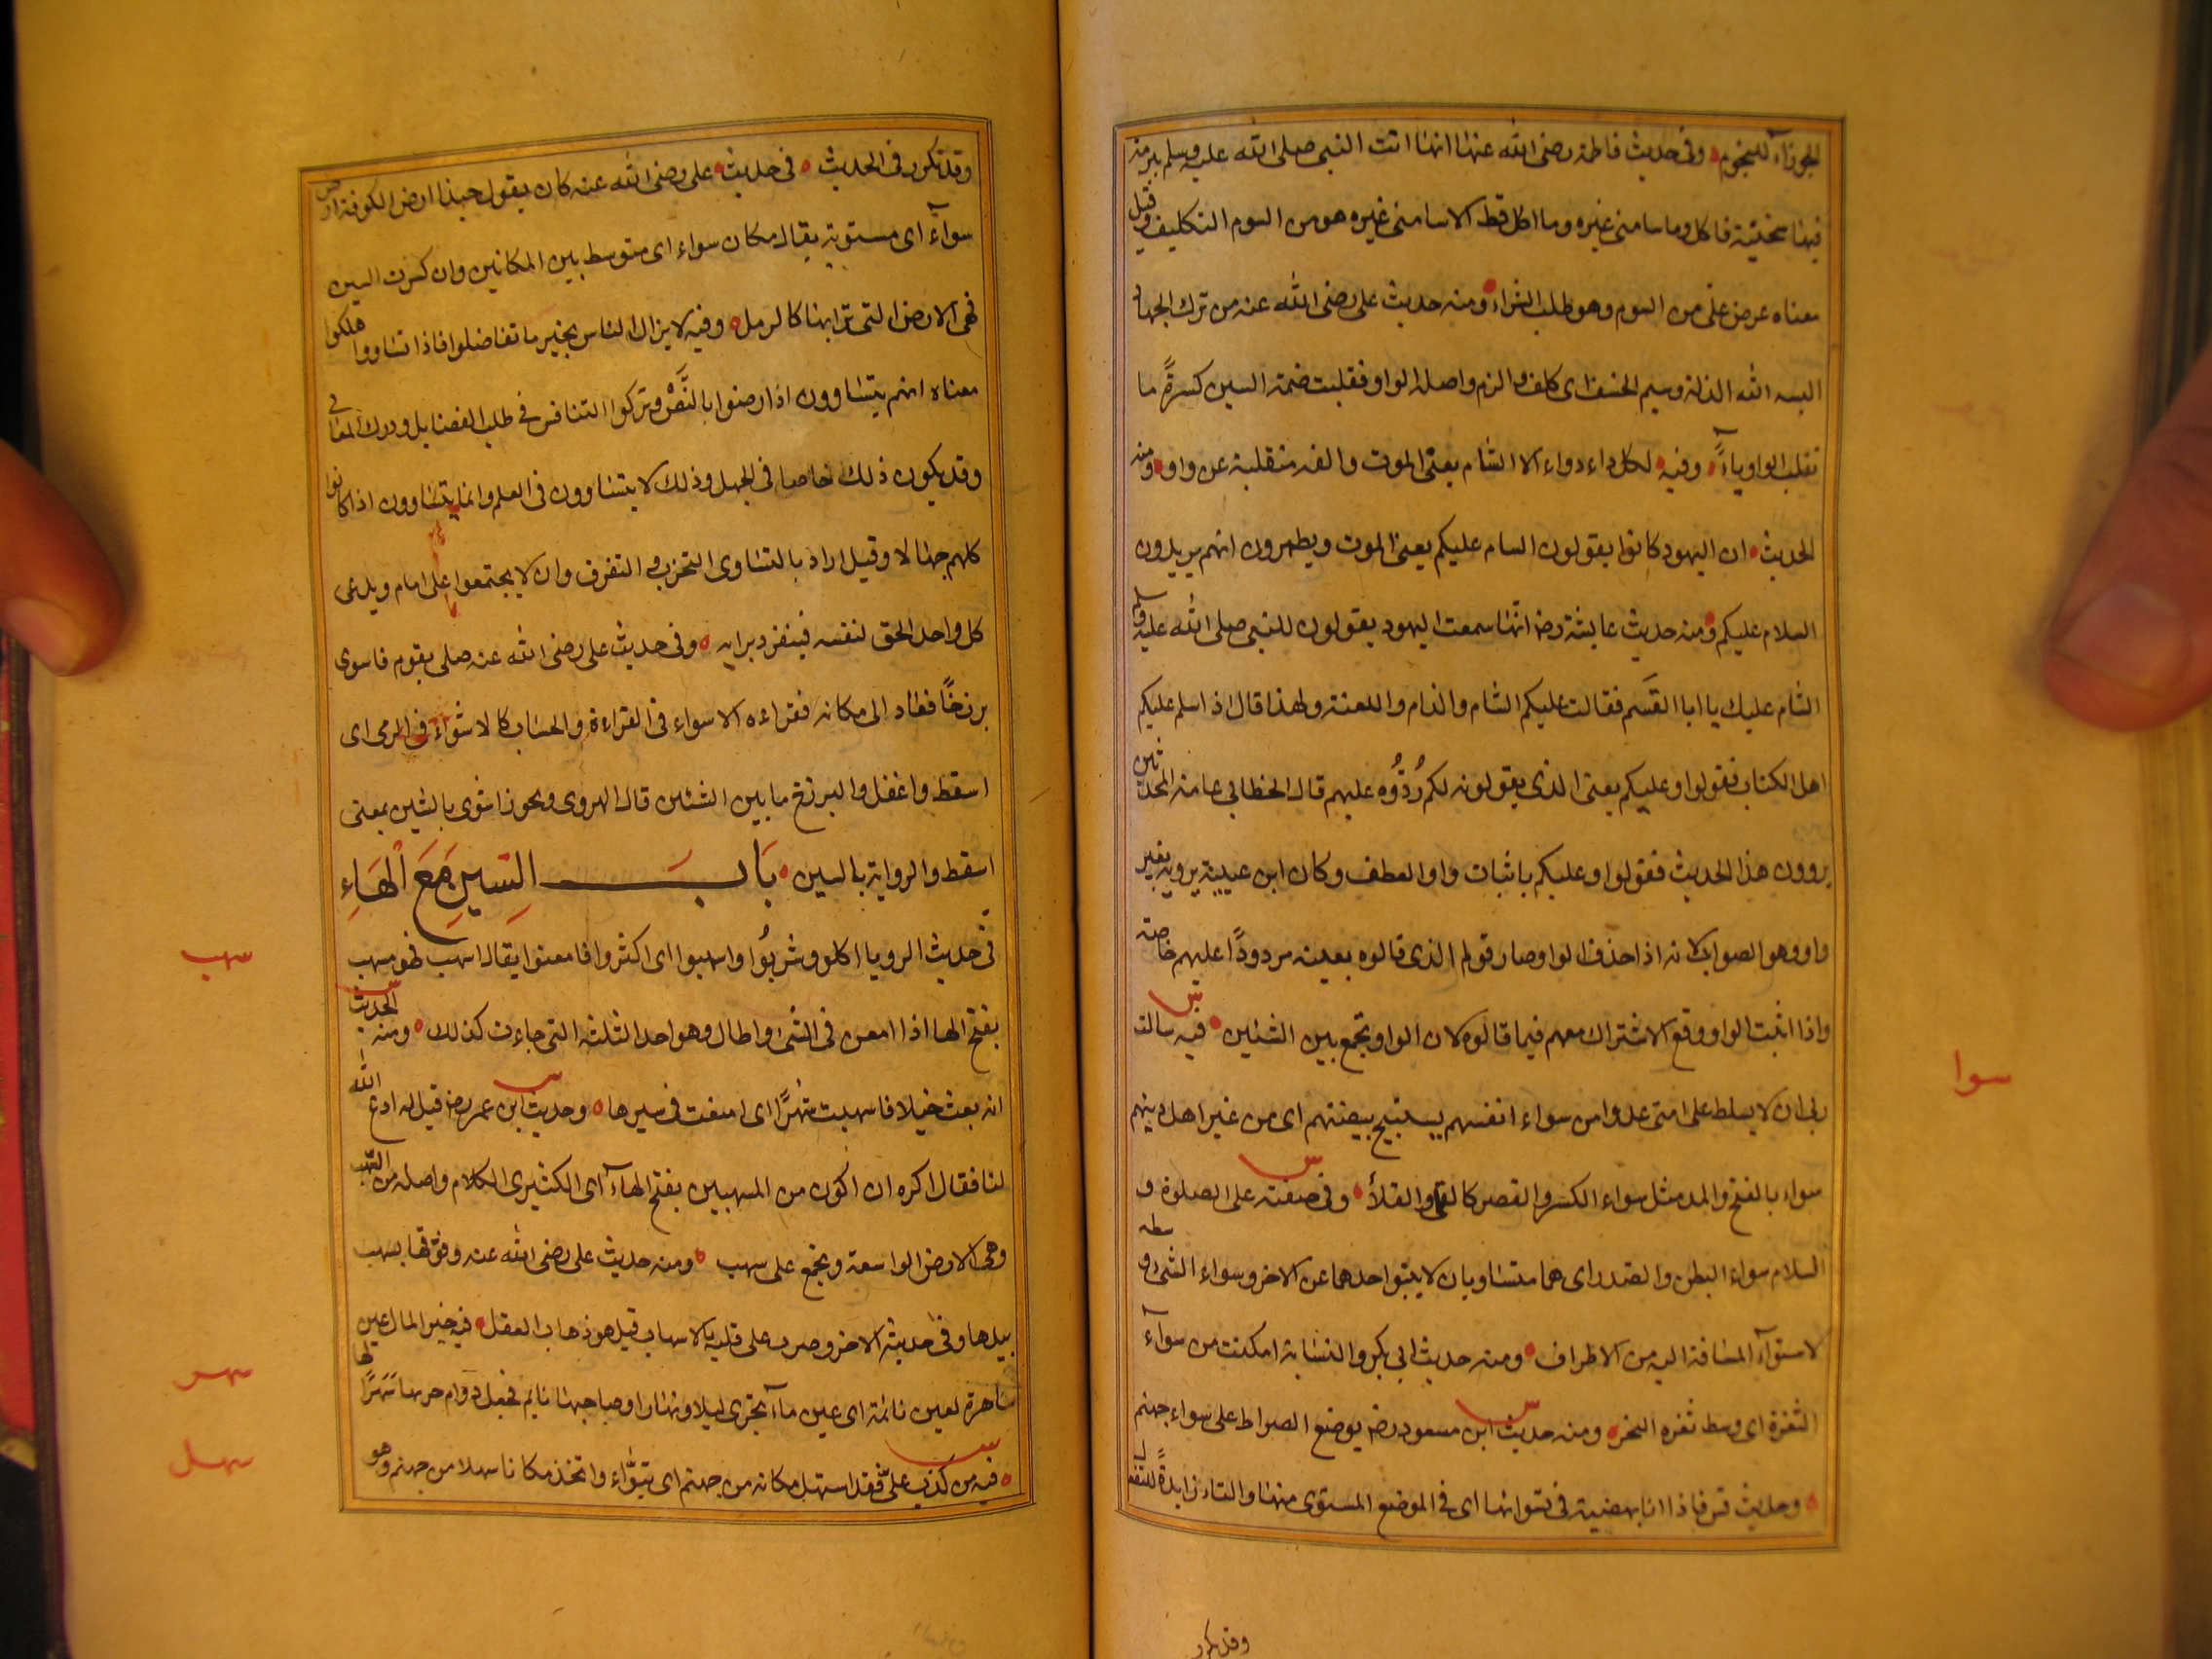 الجوزآء للنجوم وفى حديث فاطمة رضى الله عنها انها اتت النبى صلى الله عليه وسلم ببرمة
فيها سخينة فاكل وما سامنى غيره وما اكل قط الا سامنى غيره هو من السوم التكليف وقيل
معناه عرض على من السوم وهو طلب الشراء ومنه حديث على رضى الله عنه من ترك الجهاد
البسه الله الذلة وسيم الخسف اى كلف والزم واصله الواو فقلبت ضمة السين كسرةً ما
نقلب الواو ياءً وفيه لكل داء دواء الا السّام يعنى الموت والفه منقلبة عن واو ومنه
الحديث ان اليهود كانوا يقولون السام عليكم يعنى الموت ويظهرون انهم يريدون
السلام عليكم ومنه حديث عايشة رضه انّها سمعت اليهود يقولون للنبى صلى الله عليه وسلم
السّام عليك يا ابا القسَم فقالت عليكم السّام والذام واللعنة ولهذا قال اذا سلم عليكم
اهل الكتاب فقولوا وعليكم يعنى الذى يقولونه لكم رُدُّوه عليهم قال الخطابى عامة المحدثين
يروون هذا الحديث فقولوا وعليكم باثبات واو العطف وكان ابن عيينة يرويه بغير
واو وهو الصواب لانه اذا حذف الواو صار قولهم الذى قالوه بعينه مردودًا عليهم خاصة
واذا اثبت الواو وقع الاشتراك معهم فيما قالوه لان الواو تجمع بين الشئين فيه سالت
ربى ان لا يسلط على امتى عدوا من سواء انفسهم يستبيح بيضتهم اى من غير اهل دينهم
سواء بالفتح والمد مثل سواء الكسر والقصر كالقلى والقلأ وفى صفته على الصلوة و
السلام سواء البطن والصدر اى هما متساويان لا ينبو احدهما عن الاخر وسواء الشئ وسطه
لاستوآء المسافة اليه من الاطراف ومنه حديث ابى بكر والنسّابة امكنت من سوآء
الثغرة اى وسط ثغرة النحر ومنه حديث ابن مسعود رضه يوضع الصراط على سواء جهنم
وحديث قس فاذا انا بهضبة فى تسوائها اى فى الموضع المستوى منها والتاء زايدةً للتفعال
وقد تكرر
سوا
وقد تكرر فى الحديث فى حديث على رضى الله عنه كان يقول حبذا ارض الكوفة ارض
سوآءً اى مستوية يقال مكان سواء اى متوسط بين المكانين وان كسرت السين
فهى الارض التى ترابها كالرمل وفيه لا يزال الناس بخير ما تفاضلوا فاذا تساووا هلكوا
معناه انهم يتساوون اذا رضوا بالنَّقصْ وتركوا التنافس فى طلب الفضايل ودرك المعالى
وقد يكون ذلك خاصا فى الجهل وذلك لا يتساوون فى العلم وانما يتساوون اذا كانوا
كلهم جهّالا وقيل اراد بالتساوى التحزب والتفرق وان لا يجتمعوا على امام ويدعى
كل واحد الحق لنفسه فينفرد برايه وفى حديث على رضى الله عنه صلى بقوم فاسوى
برزخًا فعاد الى مكانه فقراءه الاسواء فى القراءة والحساب كالاشواء فى الرمى اى
اسقط واغفل والبرزخ ما بين الشئين قال الهروى ويجوز اشوى بالشين بمعنى
اسقط والرواية بالسين بَاب السّين مَعَ الْهَاءِ
فى حديث الرويا اكلو وشربُوا واسهبوا اى اكثروا فامعنوا يقال اسهب فهو مسهب
بفتح الها اذا امعن فى الشئ واطال وهو احد الثلثة التى جاءت كذلك ومنه الحديث
انه بعث خيلا فاسهبت شهرًا اى امعنت فى سيرها وحديث ابن عمر رضه قيل له ادع الله
لنا فقال اكره ان اكون من المسهبين بفتح الهآء اى الكثيرى الكلام واصله من السّهب
وهى الارض الواسعة ويجمع على سهب ومنه حديث على رضى الله عنه وفرّقها بسهب
بيدها وفى حديثه الاخر وضرب على قلبه بالاسهاب قيل هو ذهاب العقل فيه خير المال عين
ساهرة لعين نائمة اى عين مآء تجرى ليلا ونهارا وصاحبها نايم فجعل دوام جريها سَهَرًا لها
فيه من كذب علىّ فقد استهل مكانه من جهنم اى تبوّاء واتخذ مكانا سهلا من جهنم وهو
سهب
سهر
سهل